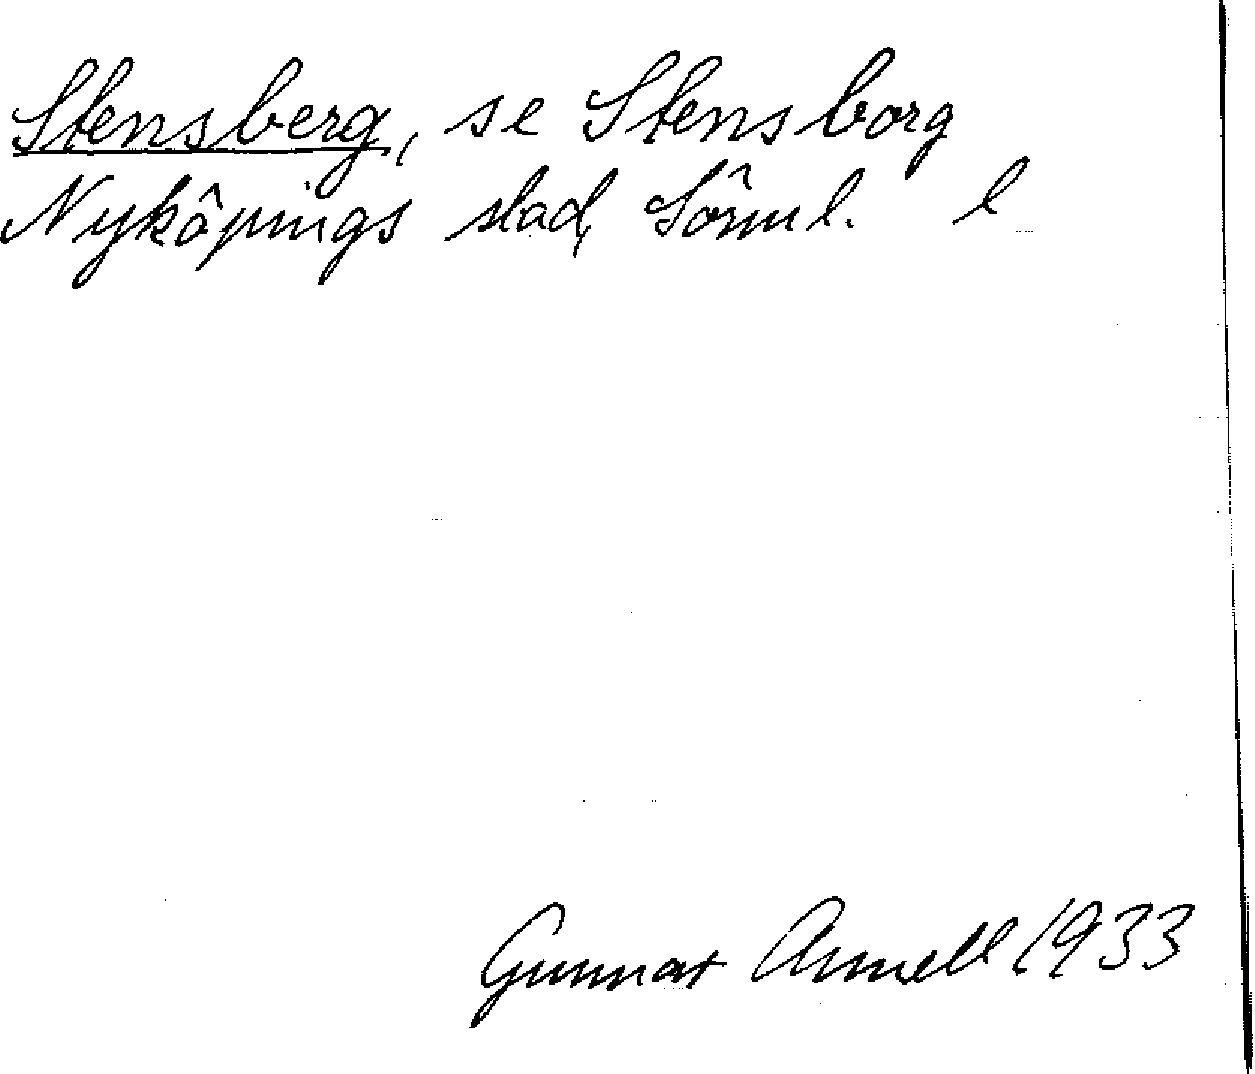 Stensberg, se Stensborg
Nyköpings stad, Sörml. l
Gunnar Arnell 1933